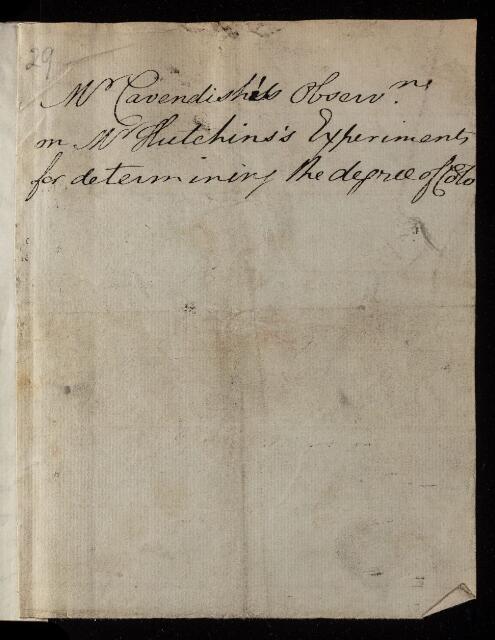 29
Mr Cavendish's Observ.ns
on Mr Hutchins's Experiments
for determining the degree of Cold